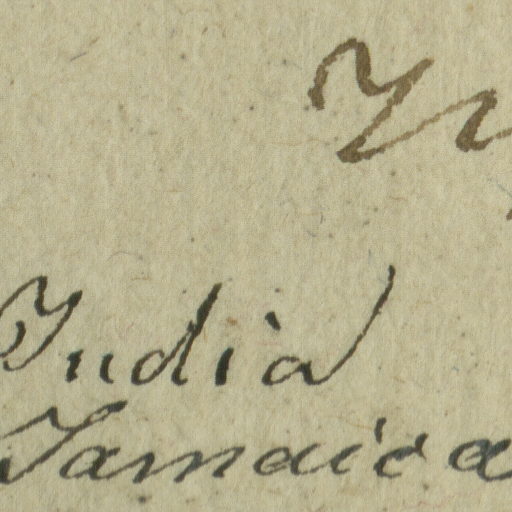 India
Jamaica